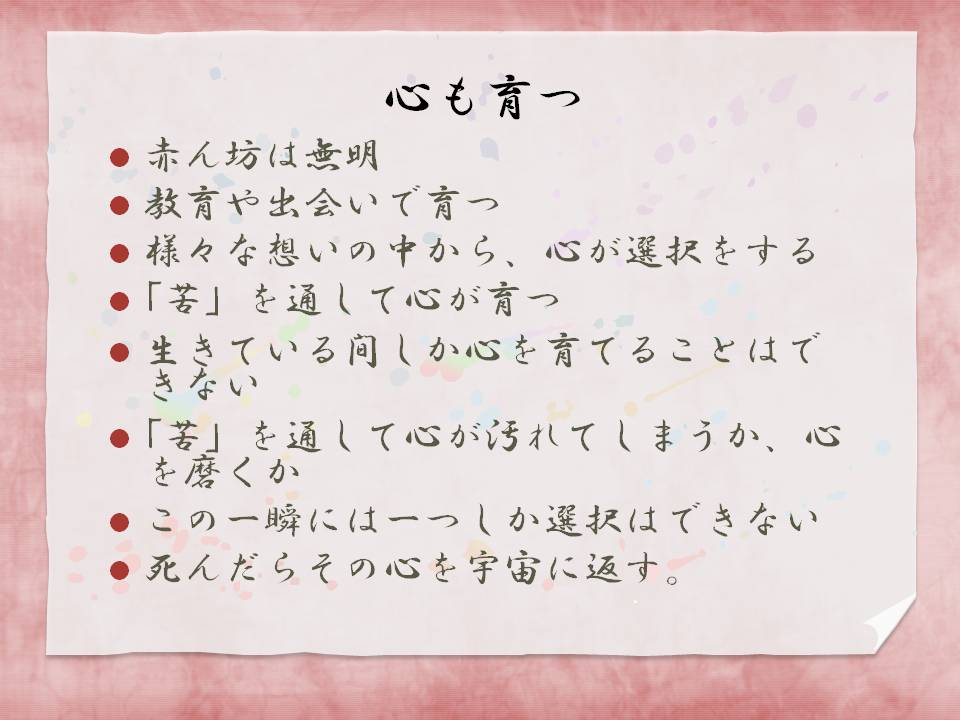 心も育つ
赤ん坊は無明
教育や出会いで育つ
様々な想いの中から、心が選択をする
「苦」を通して心が育つ
生きている間しか心を育てることはで
きない
「苦」を通して心が汚れてしまうか、心
を磨くか
この一瞬には一つしか選択はできない
死んだらその心を宇宙に返す。